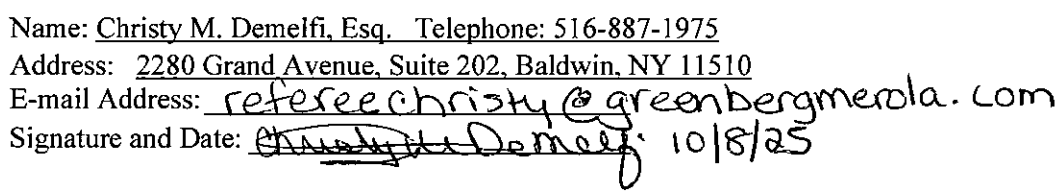 Name: Christy M. Demelfi, Esq. Telephone: 516-887-1975
Address: 2280 Grand Avenue, Suite 202, Baldwin, NY 11510
E-mail Address: refereechristy@greenbergmerola.com
Signature and Date: Christy M Demelfi 10/8/25